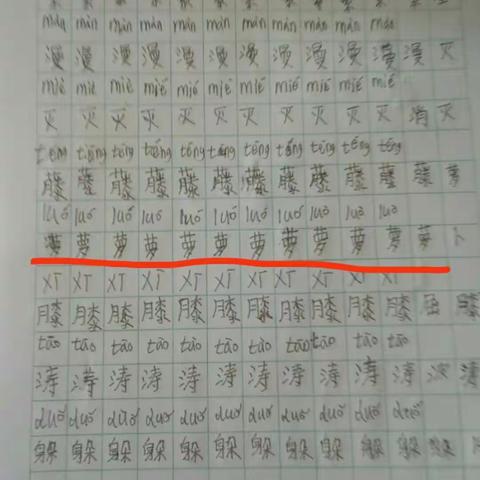 mán mán mán mán mán mán mán mán mán mán mán
漫 漫 漫 漫 漫 漫 漫 漫 漫 漫 漫 漫 灭
miè miè miè miè miè miè miè miè miè miè miè
灭 灭 灭 灭 灭 灭 灭 灭 灭 灭 灭 消 灭
téng téng téng téng téng téng téng téng téng téng téng
藤 藤 藤 藤 藤 藤 藤 藤 藤 藤 藤 藤
luó luó luó luó luó luó luó luó luó luó luó
萝 萝 萝 萝 萝 萝 萝 萝 萝 萝 萝 萝
xī xī xī xī xī xī xī xī xī xī xī
膝 膝 膝 膝 膝 膝 膝 膝 膝 膝 膝 膝
tāo tāo tāo tāo tāo tāo tāo tāo tāo tāo tāo
涛 涛 涛 涛 涛 涛 涛 涛 涛 涛 涛 波
duǒ duǒ duǒ duǒ duǒ duǒ duǒ duǒ duǒ duǒ duǒ
躲 躲 躲 躲 躲 躲 躲 躲 躲 躲 躲 躲